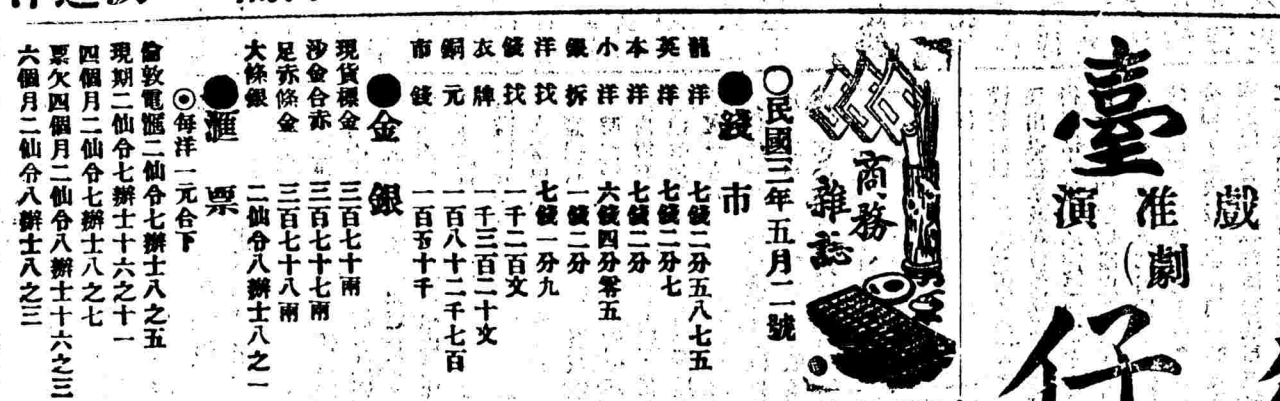 商務
雜誌
〇民國三年五月二號
●錢市
龍洋 七錢二分五八七五
英洋 七錢二分七
本洋 七錢二分
小洋 六錢四分零五
銀拆 一錢二分
洋找 七錢一分九
錢找 一千二百文
衣牌 一千三百二十文
銅元 一百八十二千七百
市錢 一百五十千
●金銀
現貨標金 三百七十兩
沙金合赤 三百七十七兩
足赤條金 三百七十八兩
大條銀 二仙令八辦士八之一
●滙票
◉每洋一元合下
倫敦電滙二仙令七辦士八之五
現期二仙令七辦士十六之十一
四個月二仙令七辦士八之七
票欠四個月二仙令八辦士十六之三
六個月二仙令八辦士八之三
臺
戲
准演
劇
仔